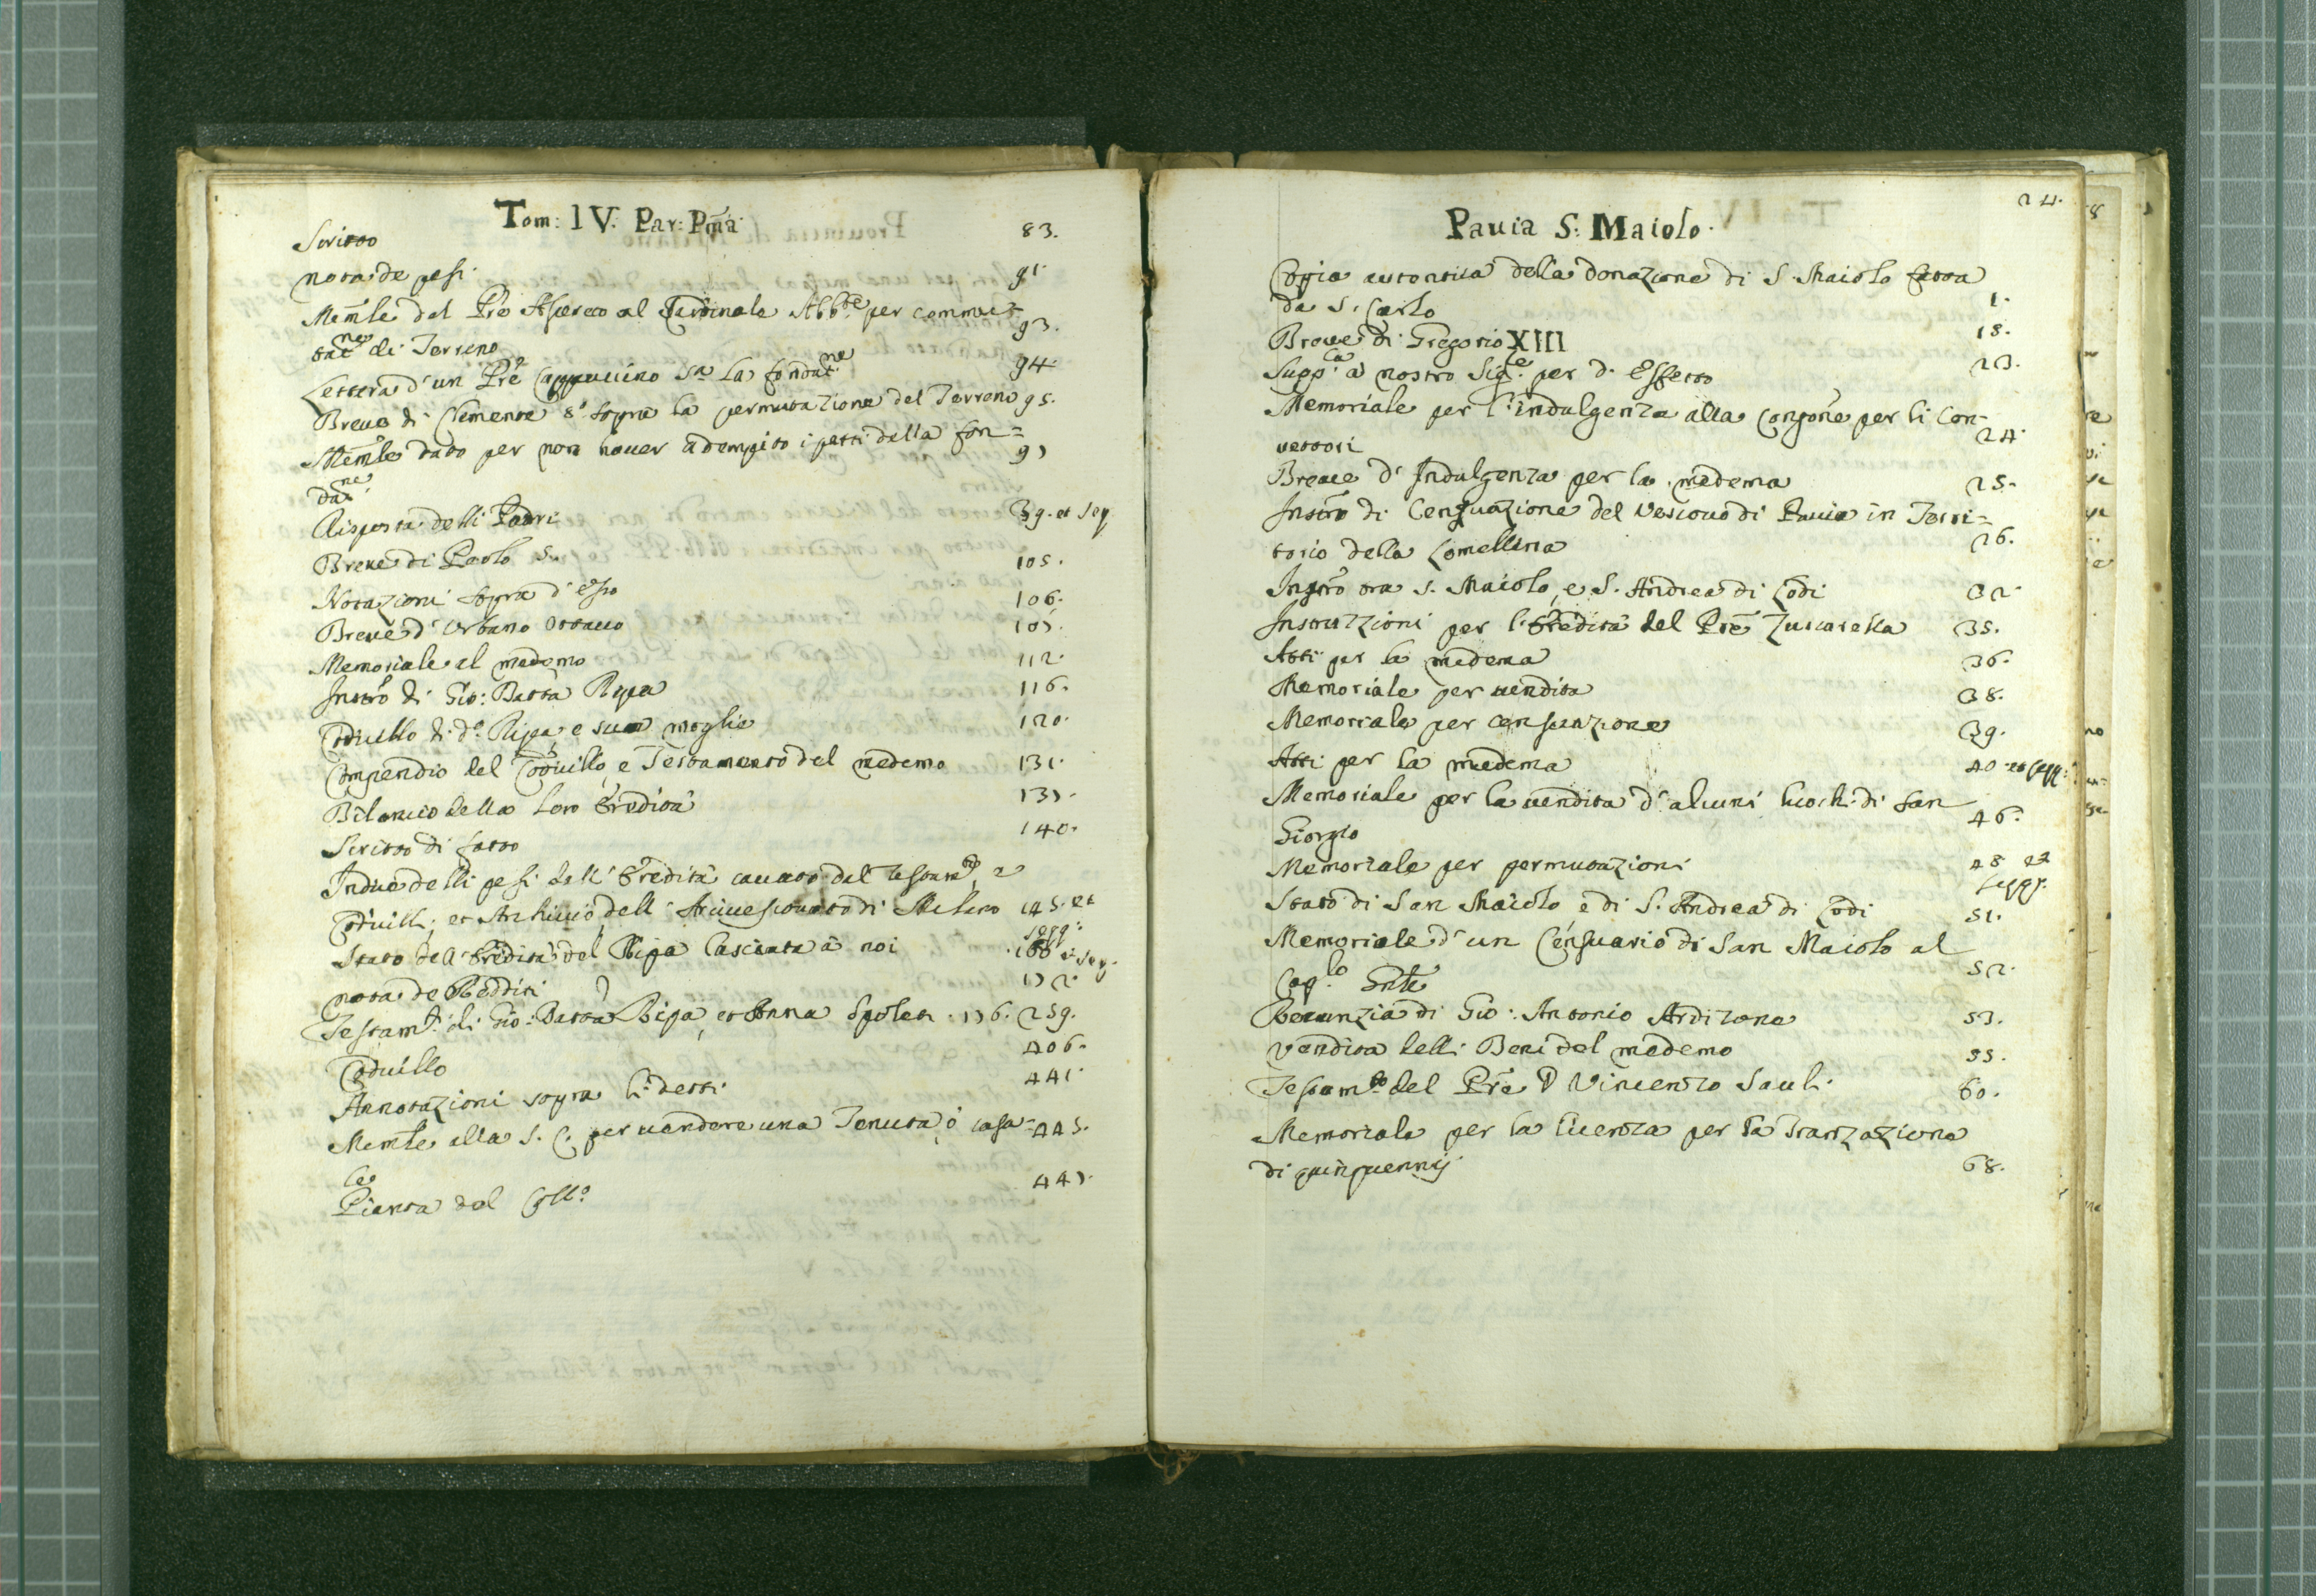 Tom: IV. Par: Pma
Scritto 83.
nota de pesi 91.
Memle del Pre Asereto al Cardinale Abbte per commut-
tatne di Terreno 93.
Lettera d'un Pre Cappuccino sa la fondatne 94
Breve di Clemente 8o sopra la permutazione del Terreno 95.
Memle dato per non hauer adempito i patti della fon=
datne 97
Risposta delli Padri 39. et seq.
Breve di Paolo 5. 105.
Notazioni sopra d'esso 106.
Breve d'Urbano ottauo 107.
Memoriale al medemo 112.
Instro di Gio: Batta Ripa 116.
Codicillo di do Ripa e sua moglie 120.
Compendio del Codicillo, e Testamento del medemo 131.
Bilancio della loro Eredità 137.
Scritto di fatto 140.
Indice delli pesi dell'Eredità cauato dal testamto, e
Codicilli, et Archiuio dell'Arciuescouato di Milano 145. et segg:
Stato dell'Eredità del Ripa lasciata à noi 166 et seq.
nota de Redditi 172.
Testamto di Gio: Batta Ripa, et Anna Spolet. 176. 259.
Codicillo 406.
Annotazioni sopra li detti 441.
Memle alla S. C. per uendere una Tenuta, ò casa-
le 445.
Pianta del Collo 447.
24.
Pauia S: Maiolo.
Coppia autentica della donazione di S. Maiolo fatta
da S. Carlo 1.
Breue di Gregorio XIII 18.
Suppca à nostro Sigre per do Effetto 23.
Memoriale per l'indulgenza alla Congone per li Con-
uettori 24.
Breue d'Indulgenza per la medema 25.
Instro di Censuazione del Vescouo di Pauia in Terri=
torio della Lomellina 26.
Instro tra S. Maiolo, e S. Andrea di Lodi 32.
Instruzzioni per l'Eredità del Pre Zuccarella 35.
Atti per la medema 36.
Memoriale per uendita 38.
Memoriale per censuazione 39.
Atti per la medema 40. et segg:
Memoriale per la uendita d'alcuni luochi di San
Giorgio 46.
Memoriale per permutazioni 48 et segg.
Stato di San Maiolo e di S. Andrea di Lodi 51.
Memoriale d'un Censuario di San Maiolo al
Caplo Gnle 52.
Renunzia di Gio: Antonio Ardizone 53.
Vendita delli Beni del medemo 55.
Testamto del Pre D Vincenzo Sauli 60.
Memoriale per la licenza per la Tranzazione
di quinquennij 68.